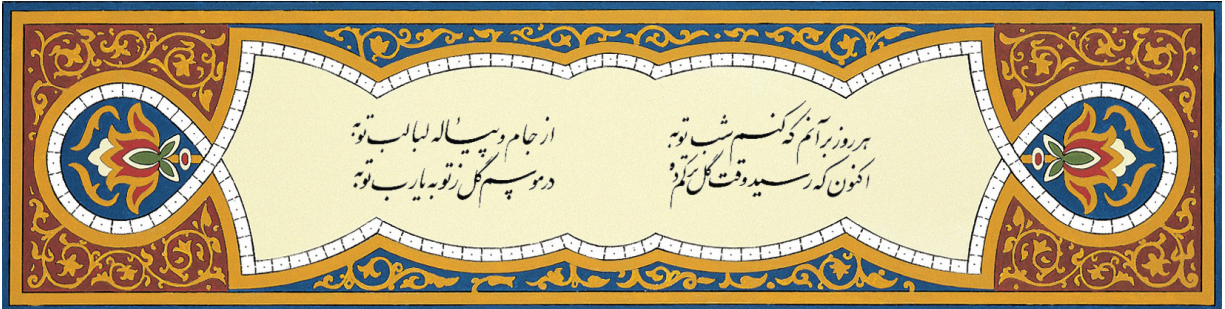 هر روز بر آنم که کنم شب توبه
از جام و پیالهٔ لبالب توبه
اکنون که رسید وقت گل ترکم ده
در موسم گل ز توبه یارب توبه